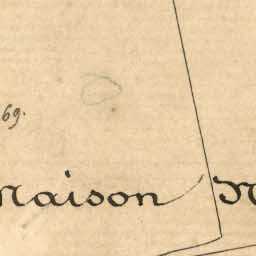 69.
Maison N